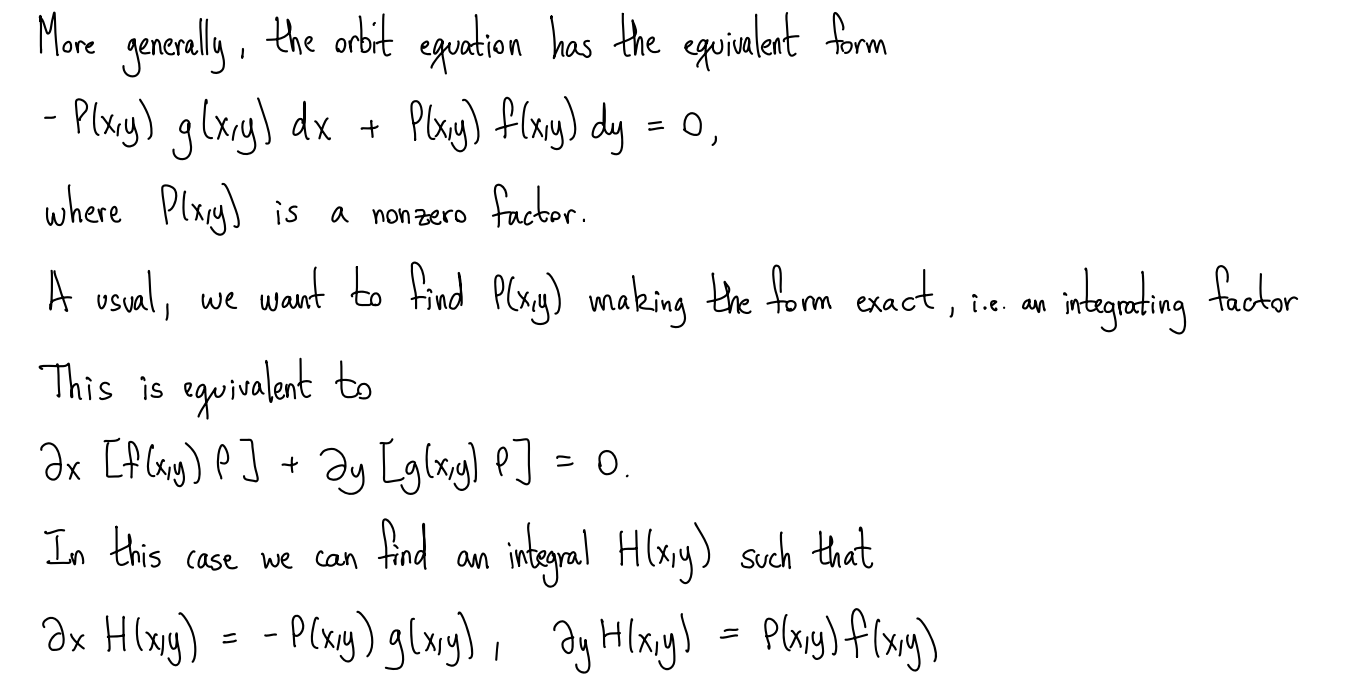 More generally, the orbit equation has the equivalent form
- P(x,y) g(x,y) dx + P(x,y) f(x,y) dy = 0,
where P(x,y) is a nonzero factor.
A usual, we want to find P(x,y) making the form exact, i.e. an integrating factor
This is equivalent to
∂x [f(x,y) P] + ∂y [g(x,y) P] = 0.
In this case we can find an integral H(x,y) such that
∂x H(x,y) = - P(x,y) g(x,y), ∂y H(x,y) = P(x,y) f(x,y)